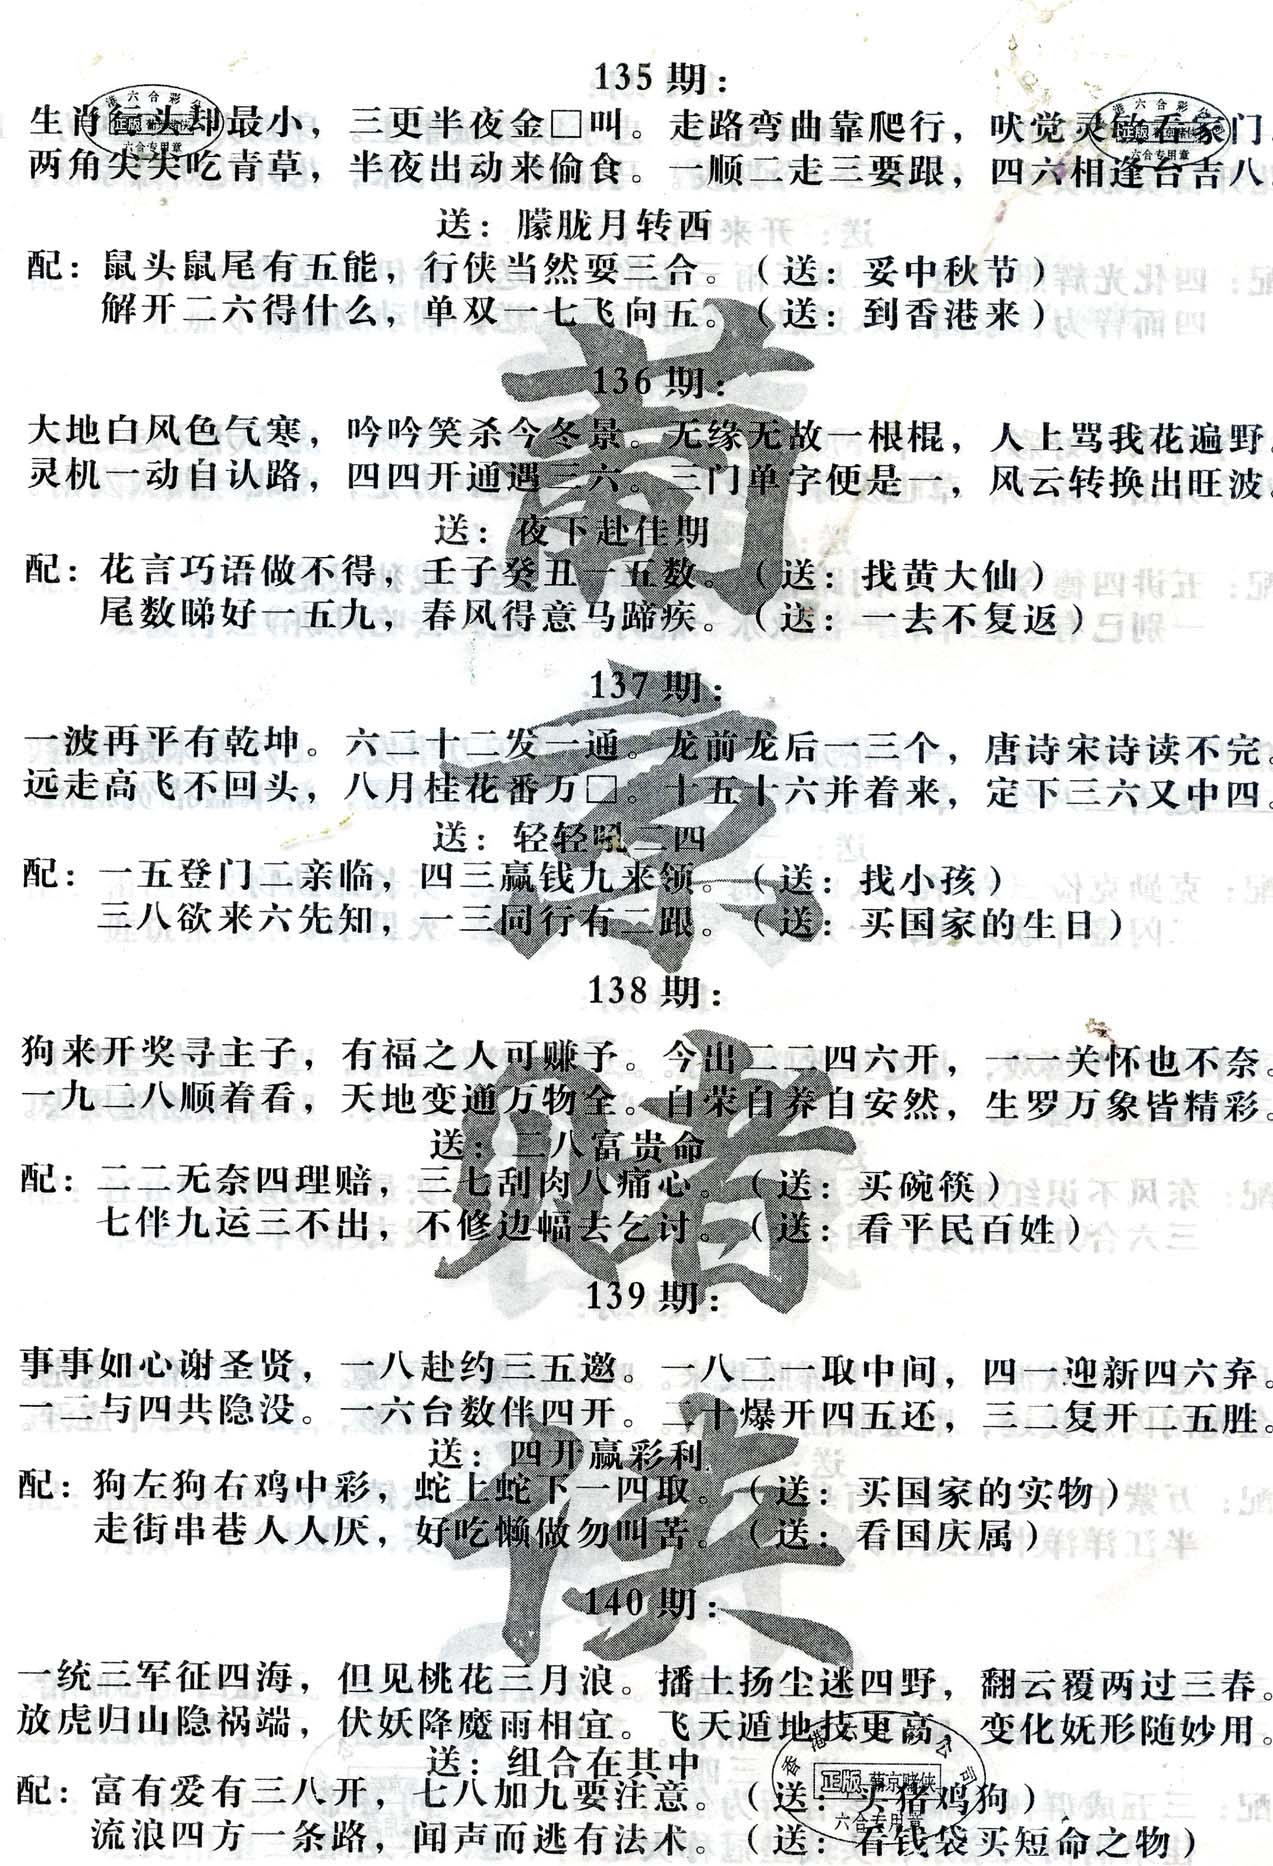 135期：
生肖行头却最小，三更半夜金□叫。走路弯曲靠爬行，吠觉灵敏看家门。
两角尖尖吃青草，半夜出动来偷食。一顺二走三要跟，四六相逢合吉八
送：朦胧月转西
配：鼠头鼠尾有五能，行侠当然耍三合。（送：妥中秋节）
解开二六得什么，单双一七飞向五。（送：到香港来）
136期：
大地白风色气寒，吟吟笑杀今冬景。无缘无故一根棍，人上骂我花遍野。
灵机一动自认路，四四开通遇三六。三门单字便是一，风云转换出旺波。
送：夜下赴佳期
配：花言巧语做不得，壬子癸丑一五数。（送：找黄大仙）
尾数睇好一五九，春风得意马蹄疾。（送：一去不复返）
137期：
一波再平有乾坤。六二十二发一通。龙前龙后一三个，唐诗宋诗读不完。
远走高飞不回头，八月桂花番万□。十五十六并着来，定下三六又中四。
送：轻轻吼二四
配：一五登门二亲临，四三赢钱九来领。（送：找小孩）
三八欲来六先知，一三同行有二跟。（送：买国家的生日）
138期：
狗来开奖寻主子，有福之人可赚予。今出二二四六开，一一关怀也不奈。
一九二八顺着看，天地变通万物全。自荣自养自安然，生罗万象皆精彩。
送：二八富贵命
配：二二无奈四理赔，三七刮肉八痛心。（送：买碗筷）
七伴九运三不出，不修边幅去乞讨。（送：看平民百姓）
139期：
事事如心谢圣贤，一八赴约三五邀。一八二一取中间，四一迎新四六弃。
一二与四共隐没。一六合数伴四开。二十爆开四五还，三二复开二五胜。
送：四开赢彩利
配：狗左狗右鸡中彩，蛇上蛇下一四取。（送：买国家的实物）
走街串巷人人厌，好吃懒做勿叫苦。（送：看国庆属）
140期：
一统三军征四海，但见桃花三月浪。播土扬尘迷四野，翻云覆两过三春。
放虎归山隐祸端，伏妖降魔雨相宜。飞天遁地技更高，变化妩形随妙用。
送：组合在其中
配：富有爱有三八开，七八加九要注意。（送：买猪鸡狗）
流浪四方一条路，闻声而逃有法术。（送：看钱袋买短命之物）
葡京赌侠
香港六合彩公司
正版 葡京赌侠
六合专用章